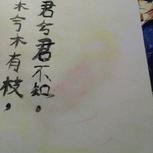 木兮木有枝，
君兮君不知。